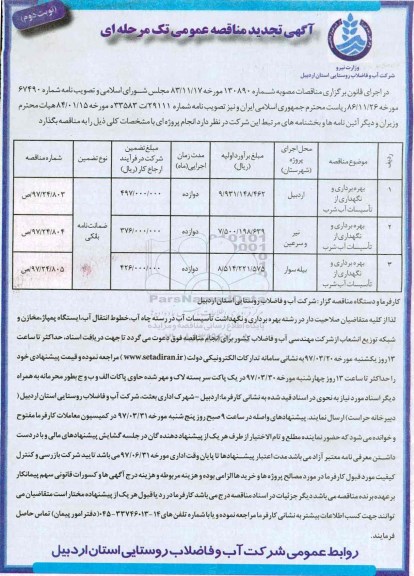 (نوبت دوم)
آگهی تجدید مناقصه عمومی تک مرحله ای
وزارت نیرو
شرکت آب و فاضلاب روستایی استان اردبیل
در اجرای قانون برگزاری مناقصات مصوبه شماره ۱۳۰۸۹۰ مورخه ۸۳/۱۱/۱۷ مجلس شورای اسلامی و تصویب نامه شماره ۶۷۴۹۰
مورخه ۸۶/۱۱/۲۶ ریاست محترم جمهوری اسلامی ایران و نیز تصویب نامه شماره ۲۹۱۱۱/ت ۳۳۵۸۳ه مورخه ۸۴/۰۱/۱۵ هیات محترم
وزیران و دیگر آئین نامه ها و بخشنامه های مرتبط این شرکت در نظر دارد انجام پروژه ای با مشخصات کلی ذیل را به مناقصه بگذارد
ردیف موضوع مناقصه محل اجرای پروژه (شهرستان) مبلغ برآورد اولیه (ریال) مدت زمان اجرایی (ماه) مبلغ تضمین شرکت در فرآیند ارجاع کار (ریال) نوع تضمین شماره مناقصه
۱ بهره برداری و نگهداری از تأسیسات آب شرب اردبیل ۹/۹۳۱/۱۴۸/۴۶۲ دوازده ۴۹۷/۰۰۰/۰۰۰ ضمانت نامه بانکی ۹۷/۲۴/۸۰۳/ص
۲ بهره برداری و نگهداری از تأسیسات آب شرب نیر و سرعین ۷/۵۰۰/۱۹۸/۶۳۹ دوازده ۳۷۶/۰۰۰/۰۰۰ ۹۷/۲۴/۸۰۴/ص
۳ بهره برداری و نگهداری از تأسیسات آب شرب بیله سوار ۸/۵۱۴/۲۲۱/۵۷۵ دوازده ۴۲۶/۰۰۰/۰۰۰ ۹۷/۲۴/۸۰۵/ص
کارفرما و دستگاه مناقصه گزار: شرکت آب و فاضلاب روستایی استان اردبیل
لذا از کلیه متقاضیان صلاحیت دار در رشته بهره برداری و نگهداشت تأسیسات آب در رسته چاه آب، خطوط انتقال آب، ایستگاه پمپاژ، مخازن و
شبکه توزیع انشعاب از شرکت مهندسی آب و فاضلاب کشور برای انجام مناقصه فوق دعوت می گردد تا جهت دریافت اسناد، حداکثر تا ساعت
۱۳ روز یکشنبه مورخه ۹۷/۰۳/۲۰ به نشانی سامانه تدارکات الکترونیکی دولت ( www.setadiran.ir ) مراجعه نموده و قیمت پیشنهادی خود
را حداکثر تا ساعت ۱۳ روز چهارشنبه مورخه ۹۷/۰۳/۳۰ در یک پاکت سر بسته لاک و مهر شده حاوی پاکات الف و ب و ج بطور محرمانه به همراه
دیگر اسناد مورد نیاز به نحوی در اسناد قید شده به نشانی کارفرما: اردبیل - شهرک اداری بعثت، شرکت آب و فاضلاب روستایی استان اردبیل (
دبیرخانه حراست) ارسال نمایند. پیشنهادهای واصله در ساعت ۹ صبح روز پنج شنبه مورخه ۹۷/۰۳/۳۱ در کمیسیون معاملات کارفرما مفتوح
و خوانده می شود که حضور نماینده مطلع و تام الاختیار از طرف هر یک از پیشنهاد دهنده گان در جلسه گشایش پیشنهادهای مالی و با در دست
داشتن معرفی نامه معتبر آزاد می باشد مدت اعتبار پیشنهادها تا پایان وقت اداری مورخه ۹۷/۰۶/۳۱ می باشد تایید شرکت بازرسی و کنترل
کیفیت مورد قبول کارفرما در مورد مصالح پروژه ها و خرید ها الزامی بوده و هزینه مربوطه و هزینه درج آگهی ها و کسورات قانونی سهم پیمانکار
بر عهده برنده مناقصه می باشد دیگر جزئیات در اسناد مناقصه درج می باشد کارفرما در رد یا قبول هر یک از پیشنهاده مختار است متقاضیان می
توانند جهت کسب اطلاعات بیشتر به نشانی کارفرما مراجعه نموده و یا با شماره تلفن های ۱۴-۰۴۵-۳۳۷۴۶۰۱۳ (دفتر امور پیمان) تماس حاصل
فرمایند.
روابط عمومی شرکت آب و فاضلاب روستایی استان اردبیل